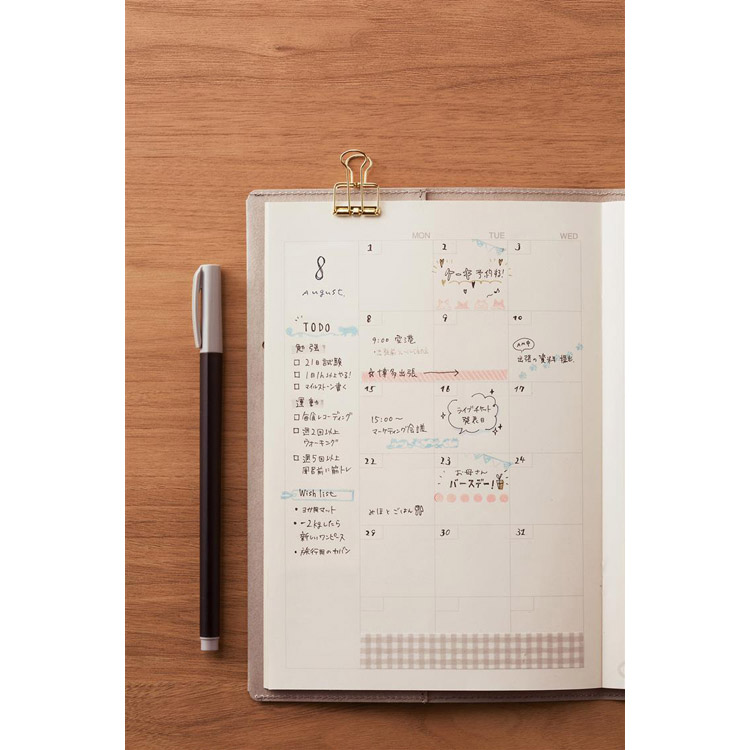 MON TUE WED
8
August
TODO
勉強
21日試験
1日1h以上やる!
マイルストーン書く
運動
毎食レコーディング
週2回以上
ウォーキング
週5回以上
風呂前に筋トレ
Wish list
・ヨガ用マット
・-2kgしたら
新しいワンピース
・旅行用のカバン
1 2 3
予約日!
8 9 10
9:00 空港
☆博多出張
AM中
出張の資料
15 16 17
15:00〜
マーケティング会議
ライブチケット
発表日
22 23 24
お母さん
バースデー!
みほとごはん
29 30 31